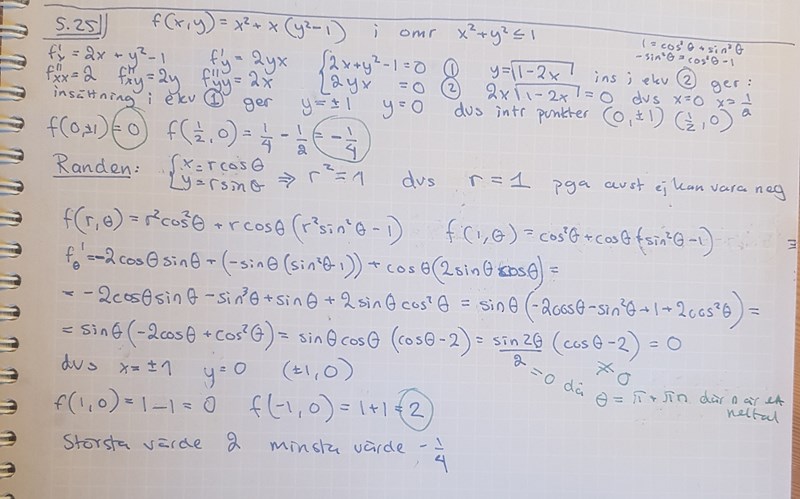 5.25 f(x,y) = x² + x(y²-1) i omr x²+y² ≤ 1
1 = cos²θ + sin²θ
-sin²θ = cos²θ - 1
f'x = 2x + y² - 1 f'y = 2yx { 2x+y²-1=0 ① y = √1-2x ins i ekv ② ger:
f''xx = 2 f''xy = 2y f''yy = 2x { 2yx = 0 ② 2x√1-2x = 0 dvs x=0 x=1/2
insättning i ekv ① ger y=±1 y=0 dvs intr punkter (0,±1) (1/2,0)
f(0,±1) = 0 f(1/2,0) = 1/4 - 1/2 = -1/4
Randen: { x=rcosθ
{ y=rsinθ ⇒ r²=1 dvs r=1 pga avst ej kan vara neg
f(r,θ) = r²cos²θ + rcosθ(r²sin²θ-1) f(1,θ) = cos²θ + cosθ(sin²θ-1) =
f'θ = -2cosθsinθ + (-sinθ(sin²θ-1)) + cosθ(2sinθcosθ) =
= -2cosθsinθ - sin³θ + sinθ + 2sinθcos²θ = sinθ(-2cosθ-sin²θ+1+2cos²θ) =
= sinθ(-2cosθ+cos²θ) = sinθcosθ(cosθ-2) = sin2θ/2 (cosθ-2) = 0
dvs x=±1 y=0 (±1,0) =0 då ≠0
θ = π + πn där n är ett heltal
f(1,0) = 1-1 = 0 f(-1,0) = 1+1 = 2
Största värde 2 minsta värde -1/4